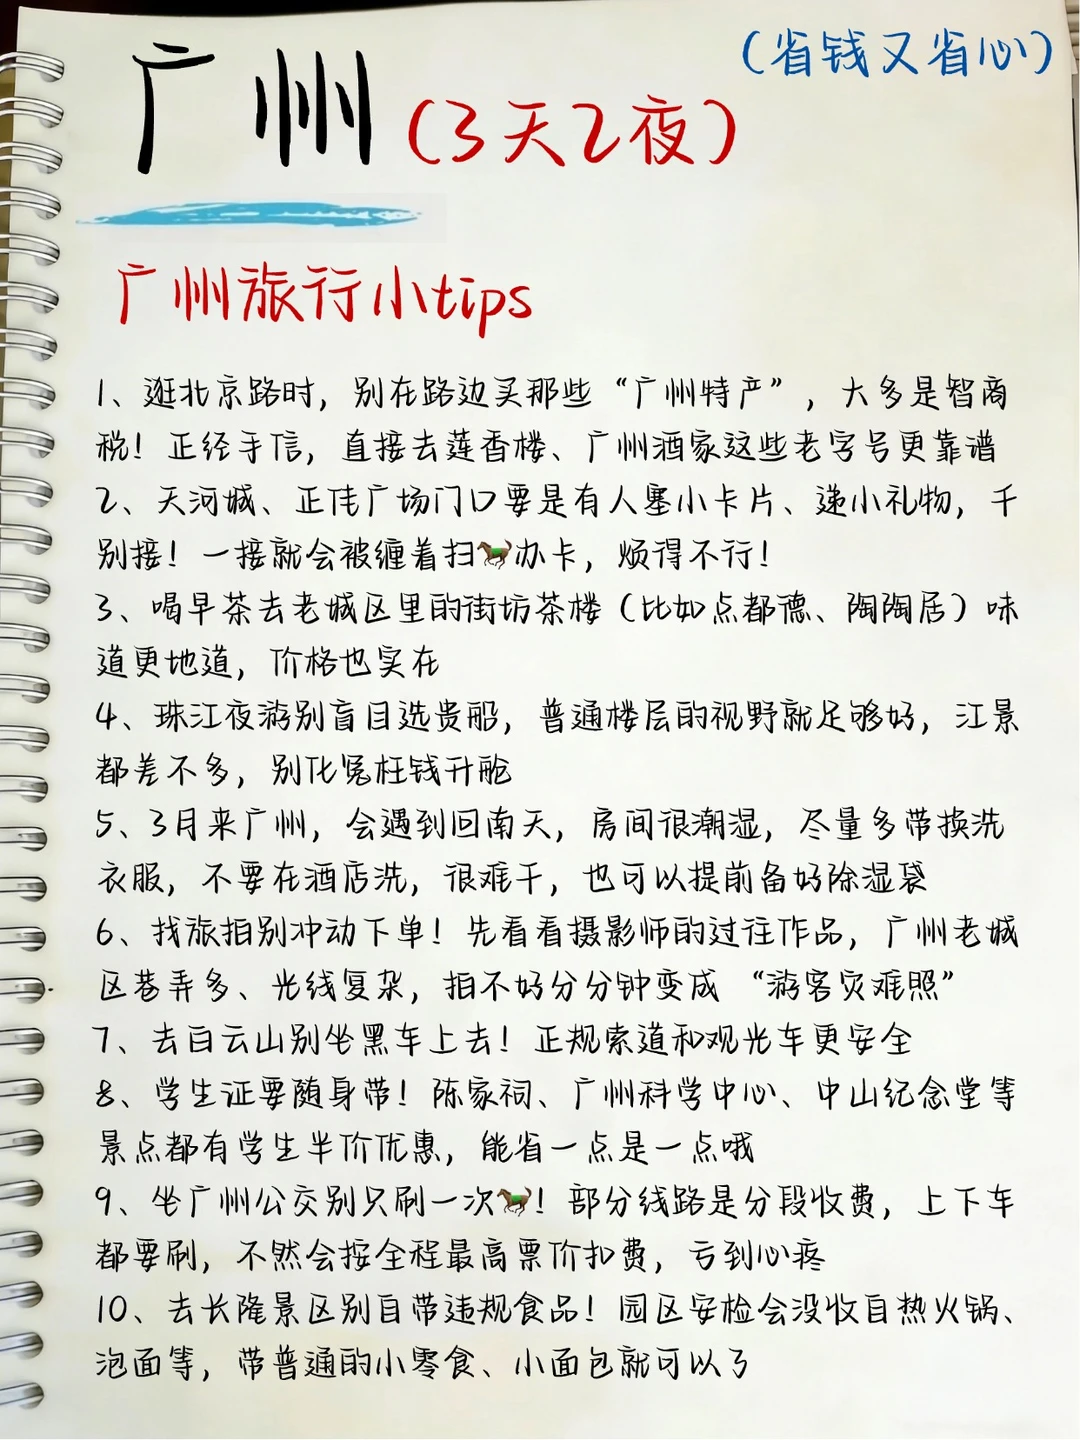 (省钱又省心)
广州(3天2夜)
广州旅行小tips
1、逛北京路时，别在路边买那些“广州特产”，大多是智商
税！正经手信，直接去莲香楼、广州酒家这些老字号更靠谱
2、天河城、正佳广场门口要是有人塞小卡片、递小礼物，千
别接！一接就会被缠着扫🐎办卡，烦得不行！
3、喝早茶去老城区里的街坊茶楼（比如点都德、陶陶居）味
道更地道，价格也实在
4、珠江夜游别盲目选贵船，普通楼层的视野就足够好，江景
都差不多，别花冤枉钱升舱
5、3月来广州，会遇到回南天，房间很潮湿，尽量多带换洗
衣服，不要在酒店洗，很难干，也可以提前备好除湿袋
6、找旅拍别冲动下单！先看看摄影师的过往作品，广州老城
区巷弄多、光线复杂，拍不好分分钟变成 “游客灾难照”
7、去白云山别坐黑车上去！正规索道和观光车更安全
8、学生证要随身带！陈家祠、广州科学中心、中山纪念堂等
景点都有学生半价优惠，能省一点是一点哦
9、坐广州公交别只刷一次🐎！部分线路是分段收费，上下车
都要刷，不然会按全程最高票价扣费，亏到心疼
10、去长隆景区别自带违规食品！园区安检会没收自热火锅、
泡面等，带普通的小零食、小面包就可以了